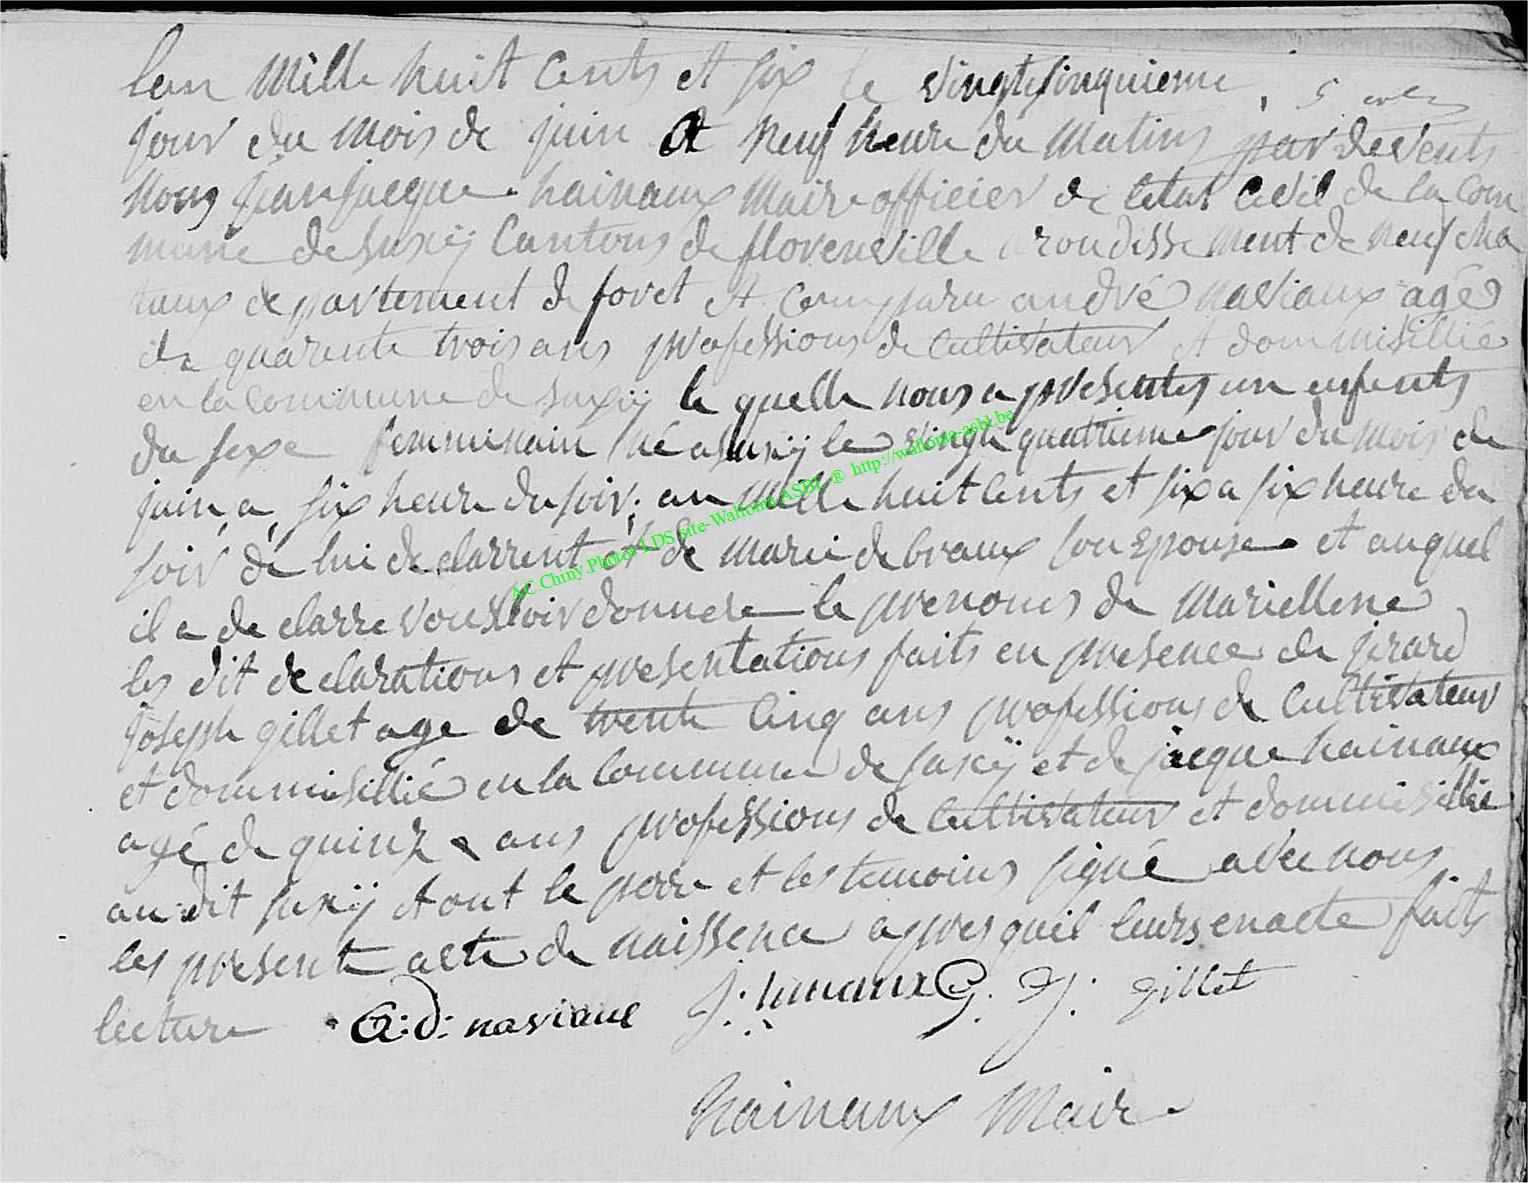 lan mille huit cents et six le vingtesinquieme
jour du mois de juin A neuf heure du matins par devents
nous jean jacque hainaux maire officier de letat Cevil de la Com
mune de suxÿ Cantons de florenville arondissement de neufcha
taux departement de foret et Comparu andré naviaux agé
de quarente trois ans professions de Cultivateur et dommisillié
en la Commune de suxÿ le quelle nous a presentes un enfents
du sexe femminain né a suxÿ le vingte quatrieme jour du mois de
juin, a, six heure du soir; an mille huit cents et six a six heure du
soir de lui de clarrent et de marie debraux son Epouse et auquel
il a de clarre voulloir donnere le prenoms de Mariellene
les dit declarations et presentations faits en presence de jirard
joseph gillet age de trente Cinq ans professions de Cultivateur
et dommisillié en la Commune de suxÿ et de jacque hainaux
agé de quinze ans professions de Cultivateur et dommisillié
au dit suxÿ et ont le perre et les temoins signé avec nous
les presente acte de naissence apres quil leurs en acte faits
lecture A: d: naviaux J: hinaux G. J: gillet
hainaux Maire
AC Chiny Photos LDS site-Wallonia ASBL ® http://wallonia-asbl.be